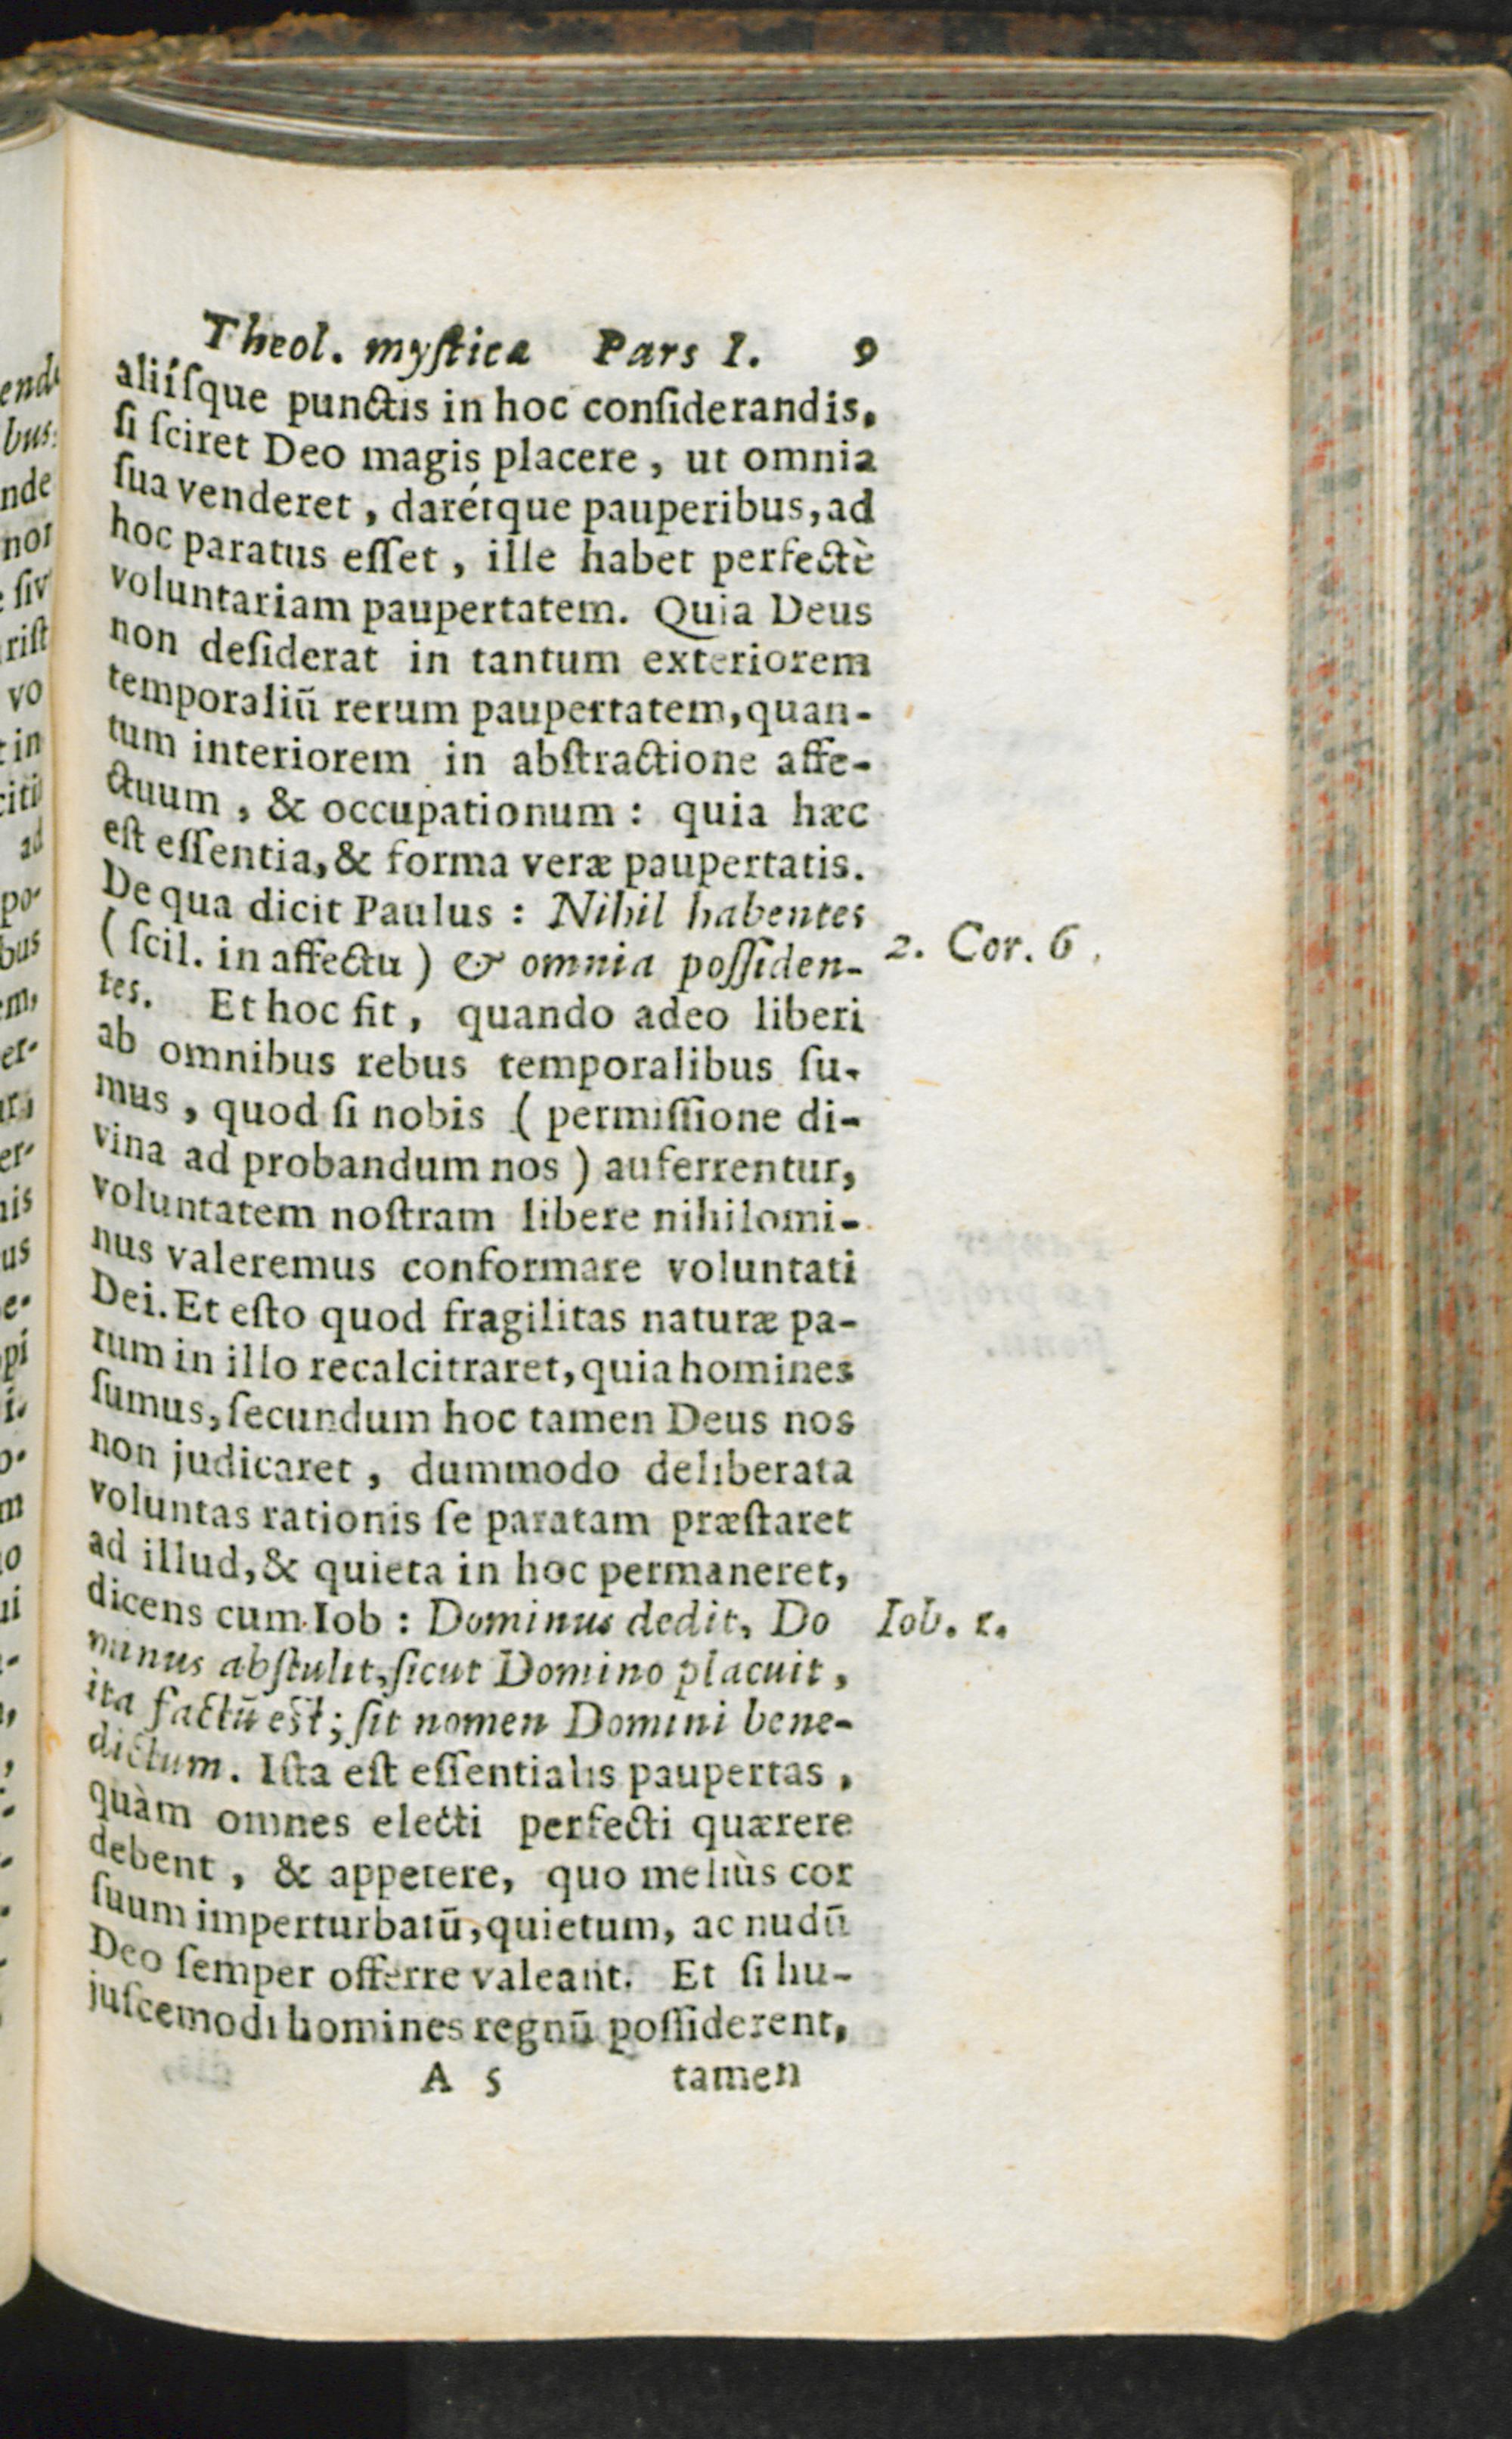 Theol. mystica Pars I. 9
aliíſque punctis in hoc conſiderandis,
ſi ſciret Deo magis placere, ut omnia
ſua venderet, darétque pauperibus, ad
hoc paratus eſſet, ille habet perfectè
voluntariam paupertatem. Quia Deus
non deſiderat in tantum exteriorem
temporaliū rerum paupertatem, quan-
tum interiorem in abſtractione affe-
ctuum, & occupationum: quia hæc
eſt eſſentia, & forma veræ paupertatis.
De qua dicit Paulus: Nihil habentes
(ſcil. in affectu) & omnia poſſiden-
2. Cor. 6.
tes. Et hoc fit, quando adeo liberi
ab omnibus rebus temporalibus ſu-
mus, quod ſi nobis (permiſſione di-
vina ad probandum nos) auferrentur,
voluntatem noſtram libere nihilomi-
nus valeremus conformare voluntati
Dei. Et eſto quod fragilitas naturæ pa-
rum in illo recalcitraret, quia homines
ſumus, ſecundum hoc tamen Deus nos
non judicaret, dummodo deliberata
voluntas rationis ſe paratam præſtaret
ad illud, & quieta in hoc permaneret,
dicens cum Iob: Dominus dedit, Do
Iob. 1.
minus abſtulit, ſicut Domino placuit,
ita factū eſt; ſit nomen Domini bene-
dictum. Iſta eſt eſſentialis paupertas,
quàm omnes electi perfecti quærere
debent, & appetere, quo meliùs cor
ſuum imperturbatū, quietum, ac nudū
Deo ſemper offerre valeant. Et ſi hu-
juſcemodi homines regnū poſſiderent,
A 5 tamen